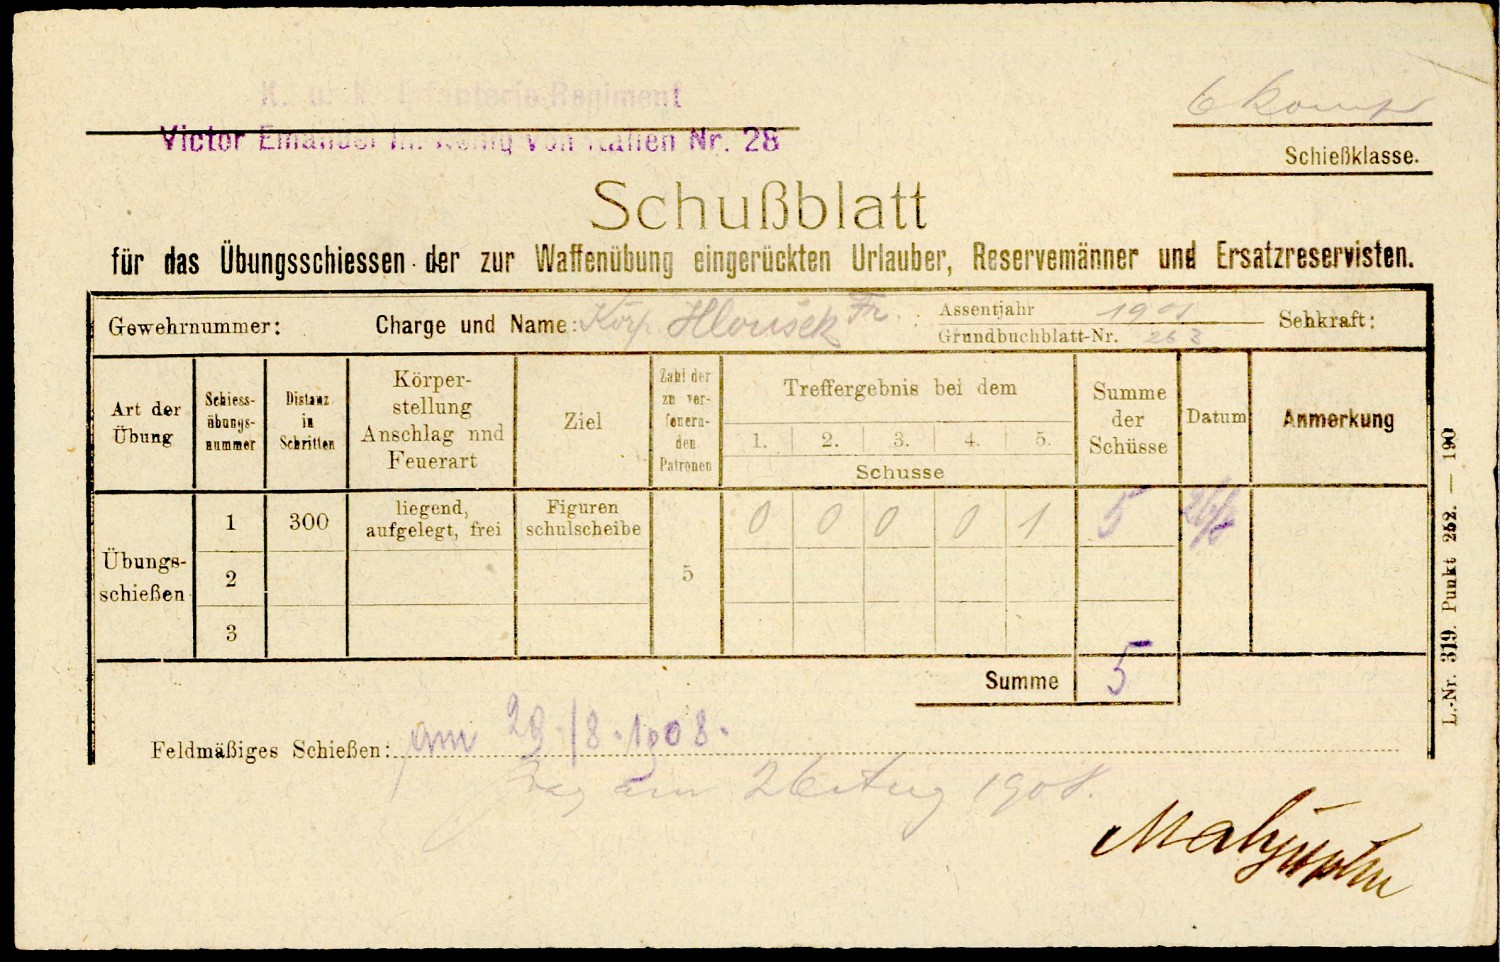 K. u. k. Infanterie Regiment
Victor Emanuel III. König von Italien Nr. 28
6 Komp
Schießklasse.
Schußblatt
für das Übungsschiessen der zur Waffenübung eingerückten Urlauber, Reservemänner und Ersatzreservisten.
Gewehrnummer: Charge und Name: Korp. Hloušek Fr. Assentjahr 1901 Sehkraft:
Grundbuchblatt-Nr. 263
Art der Übung
Schiess-übungs-nummer
Distanz in Schritten
Körper-
stellung
Anschlag nnd
Feuerart
Ziel
Zahl der
zu ver-
feuern-
den
Patronen
Treffergebnis bei dem
1. 2. 3. 4. 5.
Schusse
Summe
der
Schüsse
Datum
Anmerkung
Übungs-
schießen
1 300 liegend, aufgelegt, frei Figuren schulscheibe 0 0 0 0 1 5 26/8
2 5
3
Summe 5
Feldmäßiges Schießen: am 29./8. 1908.
Prag am 26 Aug 1908.
L.-Nr. 319. Punkt 252. — 190